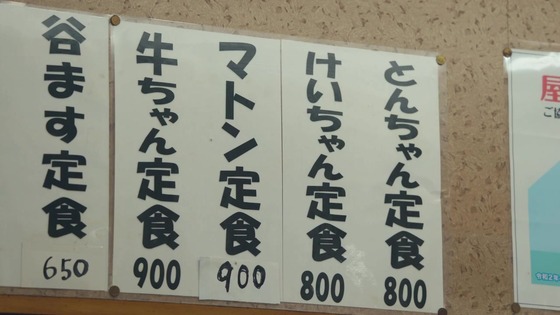 とんちゃん定食
800
けいちゃん定食
800
マトン定食
900
牛ちゃん定食
900
谷ます定食
650
令和2年